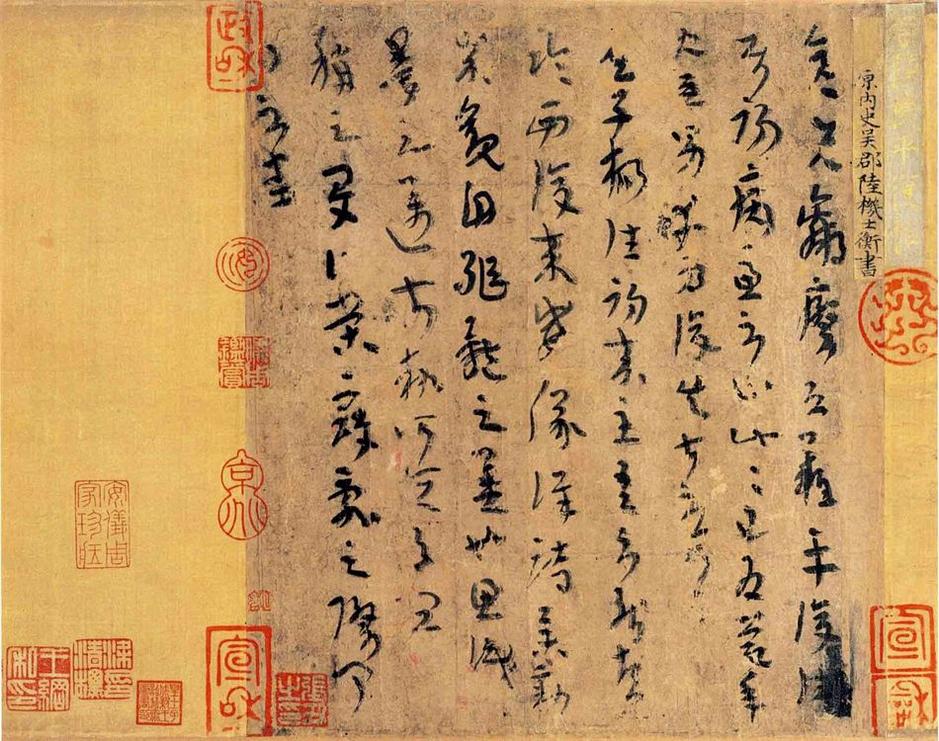 原内史吳郡陸機士衡書
彥先羸瘵恐難平復往屬
初病慮不止此此已為慶承
使唯男幸為復失前憂耳
吳子楊往初來主吾不能盡
臨西復來威儀詳跱舉動
成觀自軀體之美也思識
量之邁前執所恒有宜
稱之夏伯榮寇亂之際聞
問不悉
政和
宣和
宣和
安儀周家珍藏